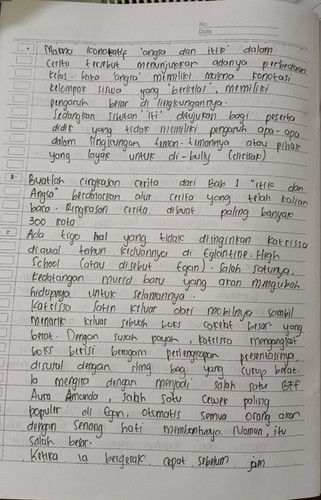 No.
Date.
• Makna konotatif 'angsa dan itik' dalam
cerita tersebut menunjukkan adanya perbedaan
kelas. Kata 'angsa' memiliki makna konotasi
kelompok siswa yang 'berkelas', memiliki
pengaruh besar di lingkungannya.
Sedangkan sebutan 'itik' ditujukan bagi peserta
didik yang tidak memiliki pengaruh apa-apa
dalam lingkungan teman-temannya atau pihak
yang layak untuk di-bully (dirisak).
3. Buatlah ringkasan cerita dari Bab 1 "Itik dan
Angsa" berdasarkan alur cerita yang telah kalian
baca. Ringkasan cerita dibuat paling banyak
300 kata.
Ada tiga hal yang tidak diinginkan Katrissa
di awal tahun keduanya di Eglantine High
School (atau disebut Egan). Salah satunya,
kedatangan murid baru yang akan mengubah
hidupnya untuk selamanya.
Katrissa Satin keluar dari mobilnya sambil
menarik keluar sebuah boks cokelat besar yang
berat. Dengan susah payah, Katrissa mengangkat
boks berisi beragam perlengkapan presentasinya,
disusul dengan sling bag yang cukup berat.
Ia mengira dengan menjadi salah satu BFF
Aura Amanda, salah satu cewek paling
populer di Egan, otomatis semua orang akan
dengan senang hati membantunya. Namun, itu
salah besar.
Ketika ia bergerak cepat sebelum jam